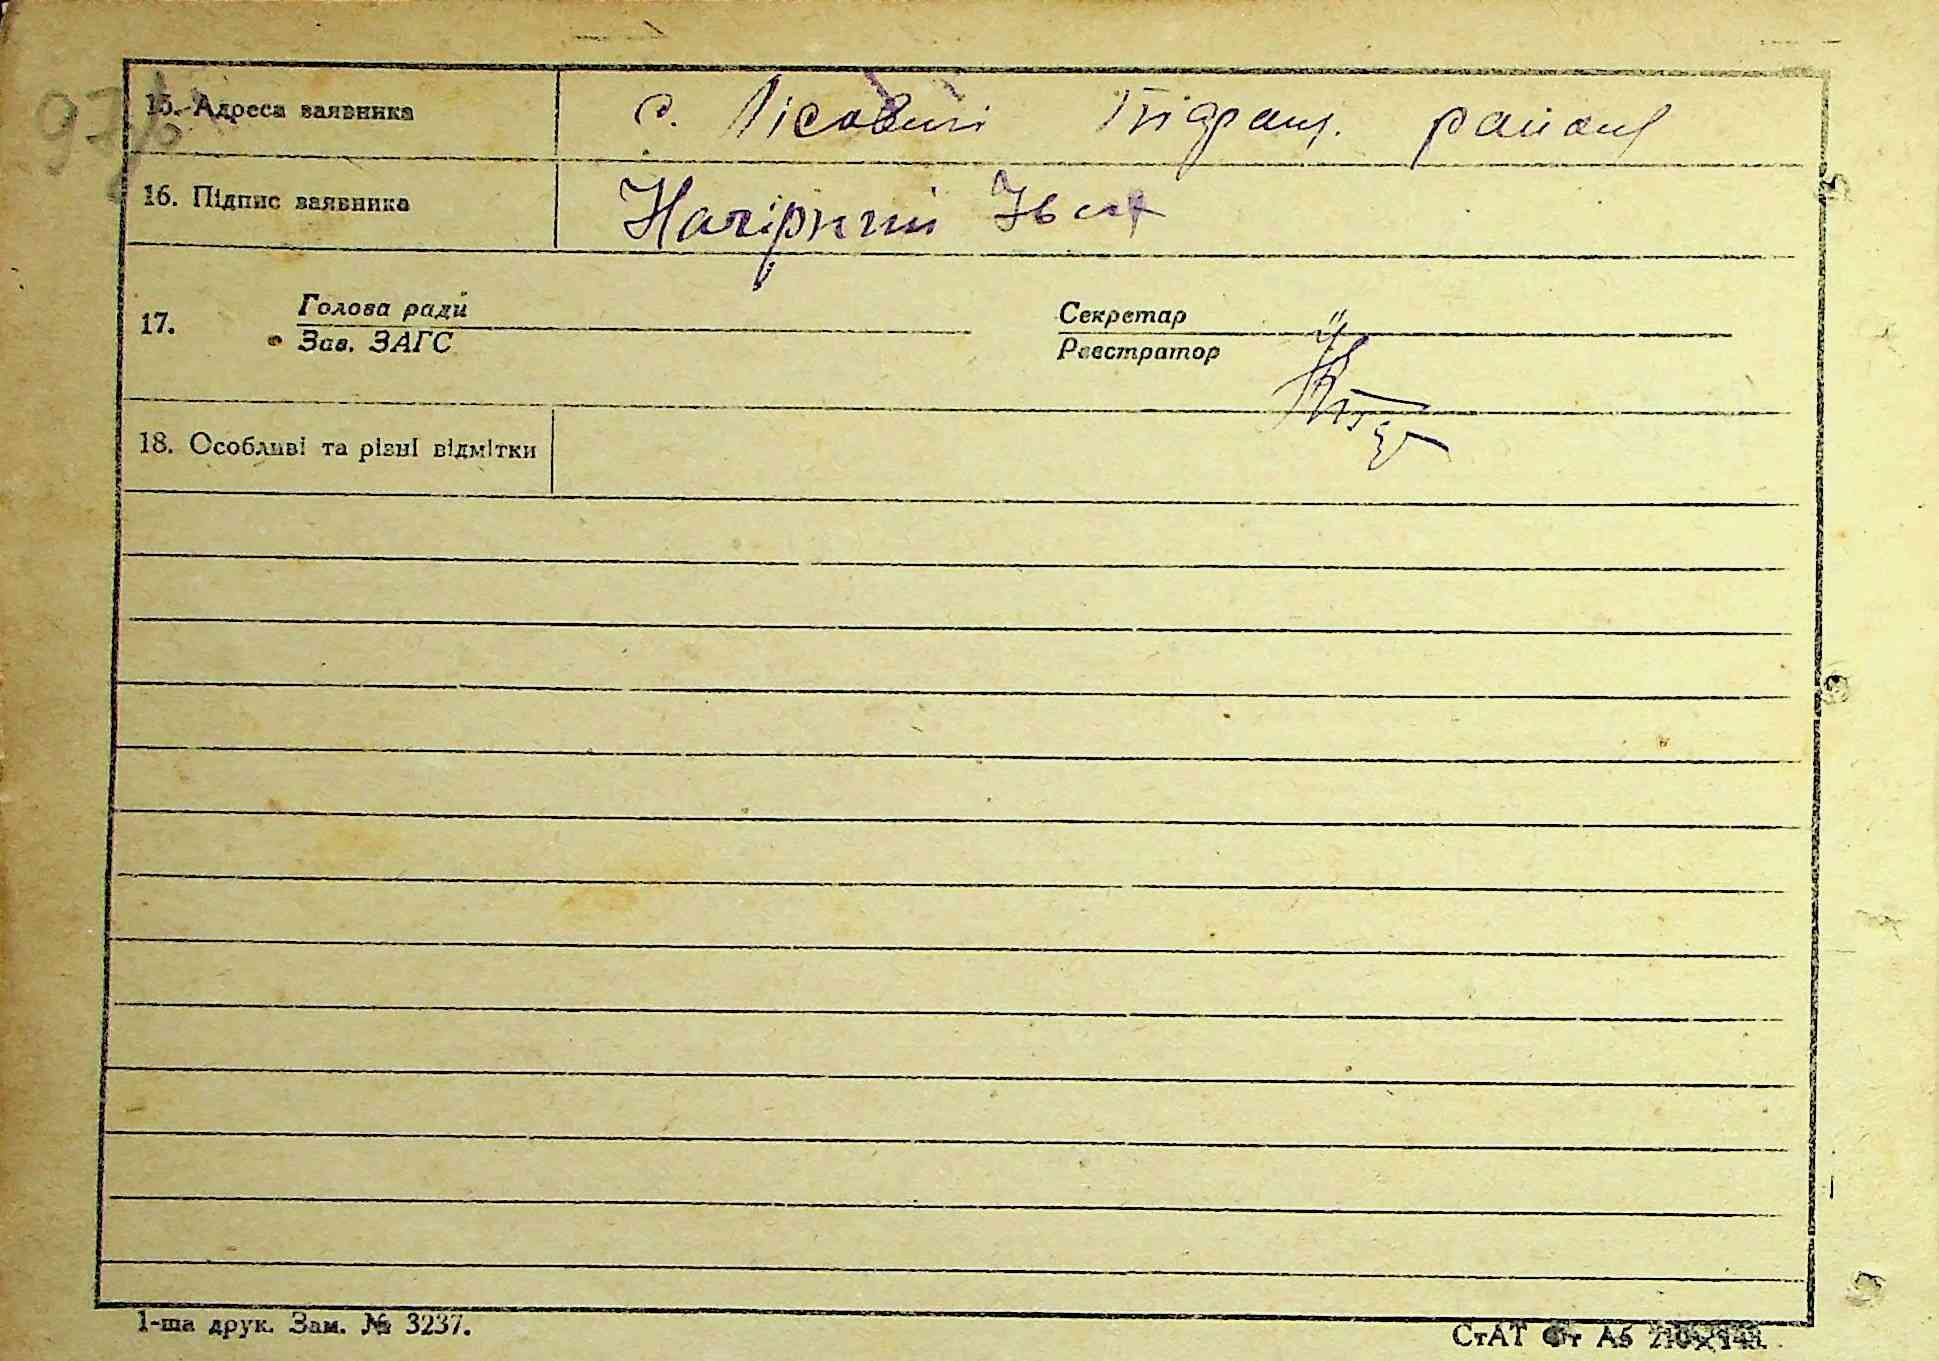 97
15. Адреса заявника с. Лісовичі району
16. Підпис заявника Нагірний Іван
17. Голова ради Секретар
Зав. ЗАГС Реєстратор
18. Особливі та різні відмітки
1-ша друк. Зам. № 3237.
СтАТ Фт А5 210×148.